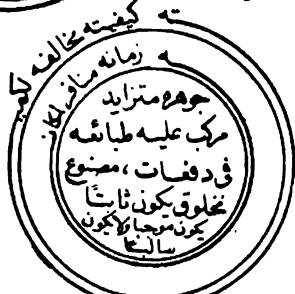 ته كيفيته مخالفه لكم
ـه زمانه منافر لمكا
جوهره متزايد
مركب عليه طبائعه
فى دفعات، مصنوع
مخلوق يكون ثابتًا
يكون موجبا لا يكون
سالبًا